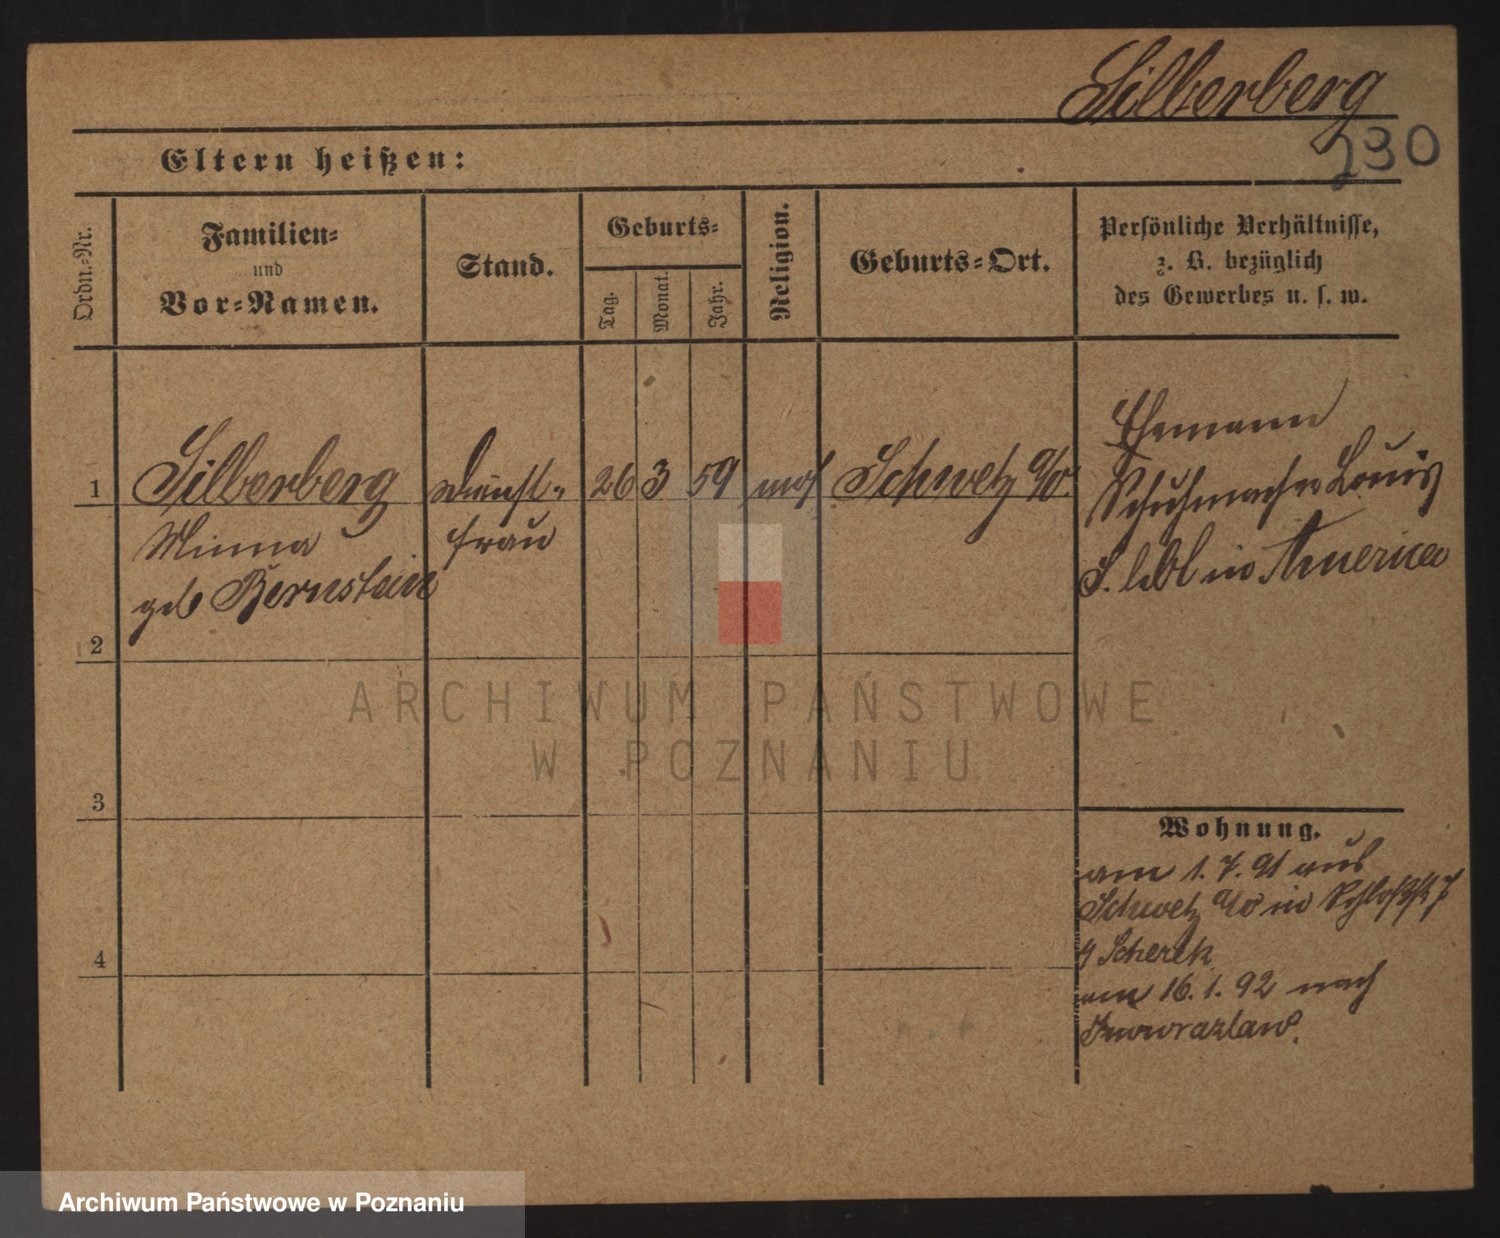 Silberberg
230
Eltern heißen:
Ordn.-Nr.
Familien-
und
Vor-Namen.
Stand.
Geburts-
Tag.
Monat.
Jahr.
Religion.
Geburts-Ort.
Persönliche Verhältnisse,
z. B. bezüglich
des Gewerbes u. s. w.
1
Silberberg
Minna
geb Bernstein
Dienst-
frau
26 3 59 mos Schwetz a/W.
Ehemann
Schuhmacher Louis
S. lebt in America
2
3
4
Wohnung.
am 1. 7. 91 aus
Schwetz a/W in Schloßstr 7
Scherek
am 16. 1. 92 nach
Inowrazlaw.
ARCHIWUM PAŃSTWOWE
W POZNANIU
Archiwum Państwowe w Poznaniu